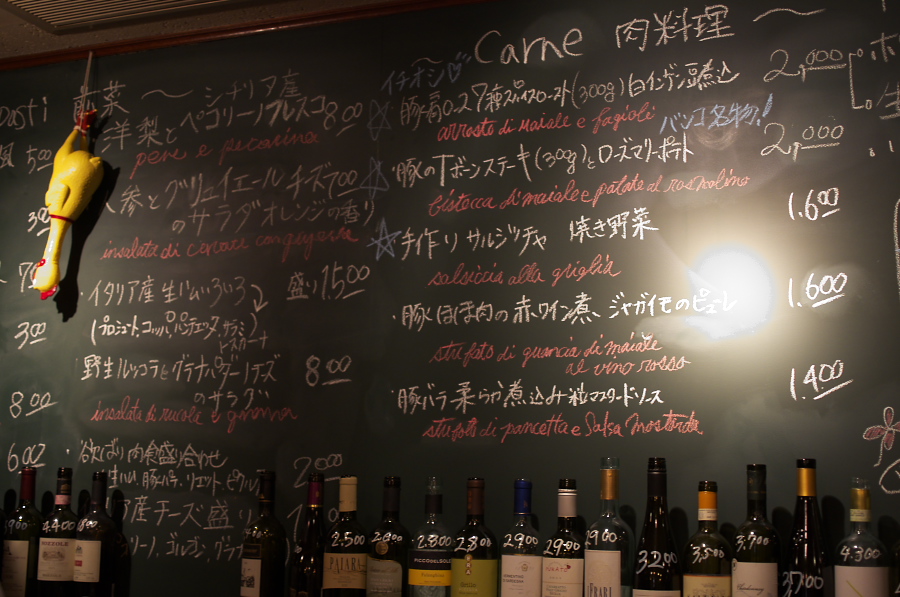 前菜 〜 シチリア産
洋梨とペコリーノフレスコ 800
pere e pecorino
人参とグリュイエールチーズ 700
のサラダオレンジの香り
insalata di carote con gruyera
イタリア産生ハムいろいろ 盛り1,500
(プロシュート、コッパ、パンチェッタ、サラミ)
野生ルッコラとグラナパダーノチーズ 800
のサラダ
insalata di rucola e grana
・欲ばり肉食盛り合わせ 2,000
生ハム、豚ハム、リエット、ピクルス
産チーズ盛り
500
300
800
600
イチオシ 〜Carne 肉料理 〜
豚肩の27種スパイスロースト(300g)白インゲン豆煮込 2,000
arrosto di maiale e fagioli
バンコ名物!
・豚のTボーンステーキ(300g)とローズマリーポテト 2,000
bistecca di maiale e patate al rosmolino
手作りサルシッチャ 焼き野菜 1,600
salsiccia alla griglia
・豚ほほ肉の赤ワイン煮、ジャガイモのピューレ 1,600
stufato di guancia di maiale
al vino rosso
・豚バラ柔らか煮込み粒マスタードソース 1,400
stufato di pancetta e salsa mostarda
4400
2500
2800
2800
2900
2900
3200
3500
3700
3700
4300